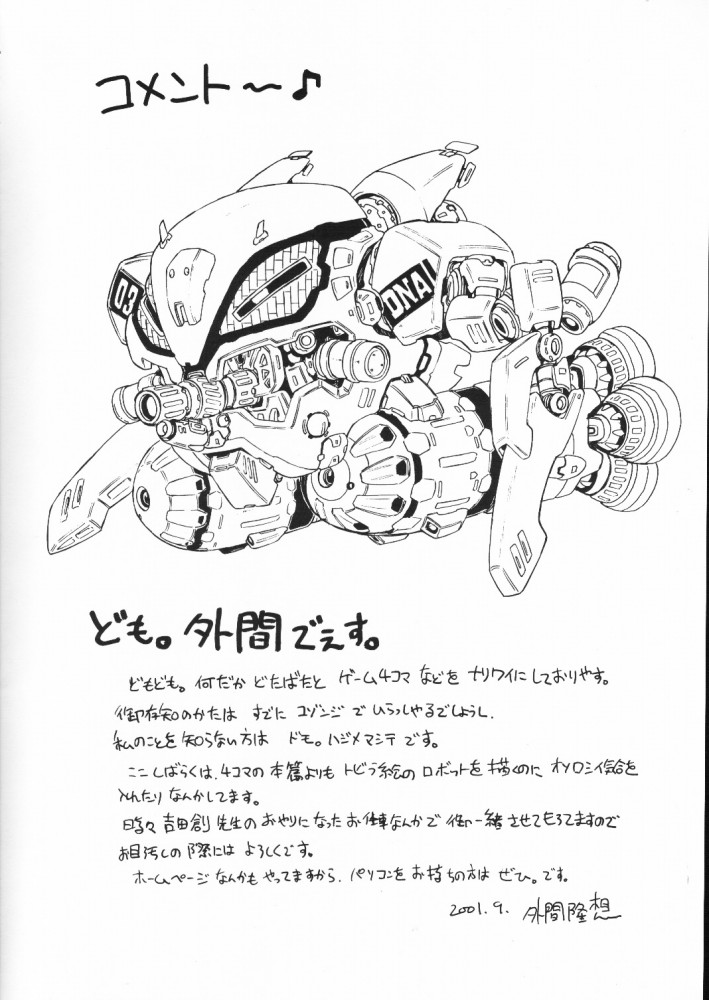 コメント〜♪
03
DNA
ども。外間でぇす。
どもども。何だか どたばたと ゲーム4コマ などを ナリワイに しておりやす。
御存知のかたは すでに ユゾンジ で いらっしゃるでしょうし、
私のことを知らない方は ドモ。ハジメマシテ です。
ここしばらくは、4コマの本篇よりも トビラ絵の ロボットを 描くのに オソロシイ気合を
入れたり なんかしてます。
時々 吉田創 先生の おやりになった お仕事なんかで 御一緒 させてもろてますので
お目汚しの際には よろしくです。
ホームページなんかも やってますから、パソコンを お持ちの方は ぜひ。です。
2001.9. 外間隆想